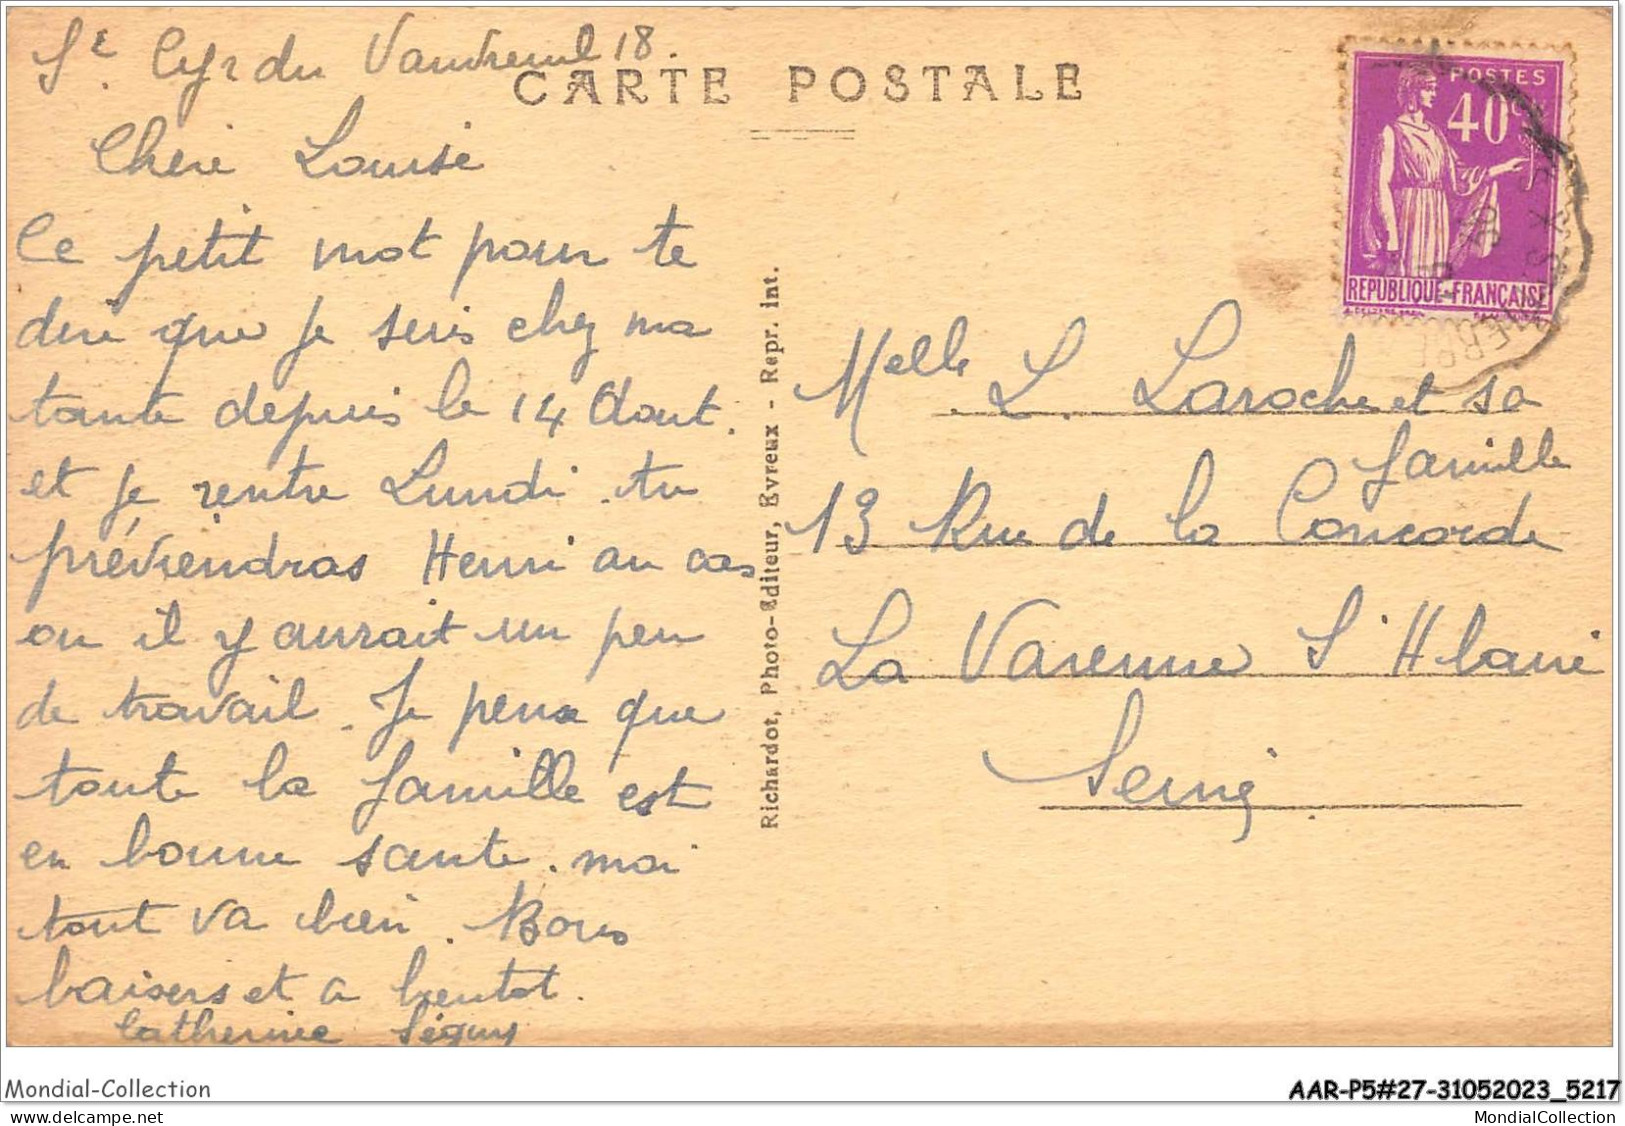 St. Cyr du Vaudreuil 18.
CARTE POSTALE
Chere Louise
Ce petit mot pour te
dire que je suis chez ma
tante depuis le 14 Aout.
et je rentre Lundi. tu
préviendras Henri au cas
ou il y aurait un peu
de travail. Je pense que
toute la famille est
en bonne sante. moi
tout va bien. Bons
baisers et a bientot.
Catherine Séguy
Richardot, Photo-Editeur, Evreux - Repr. int.
POSTES
40c
REPUBLIQUE-FRANÇAISE
Melle L. Laroche et sa
famille
13 Rue de la Concorde
La Varenne St Hlaire
Seine
Mondial-Collection
AAR-P5#27-31052023_5217
www.delcampe.net
MondialCollection